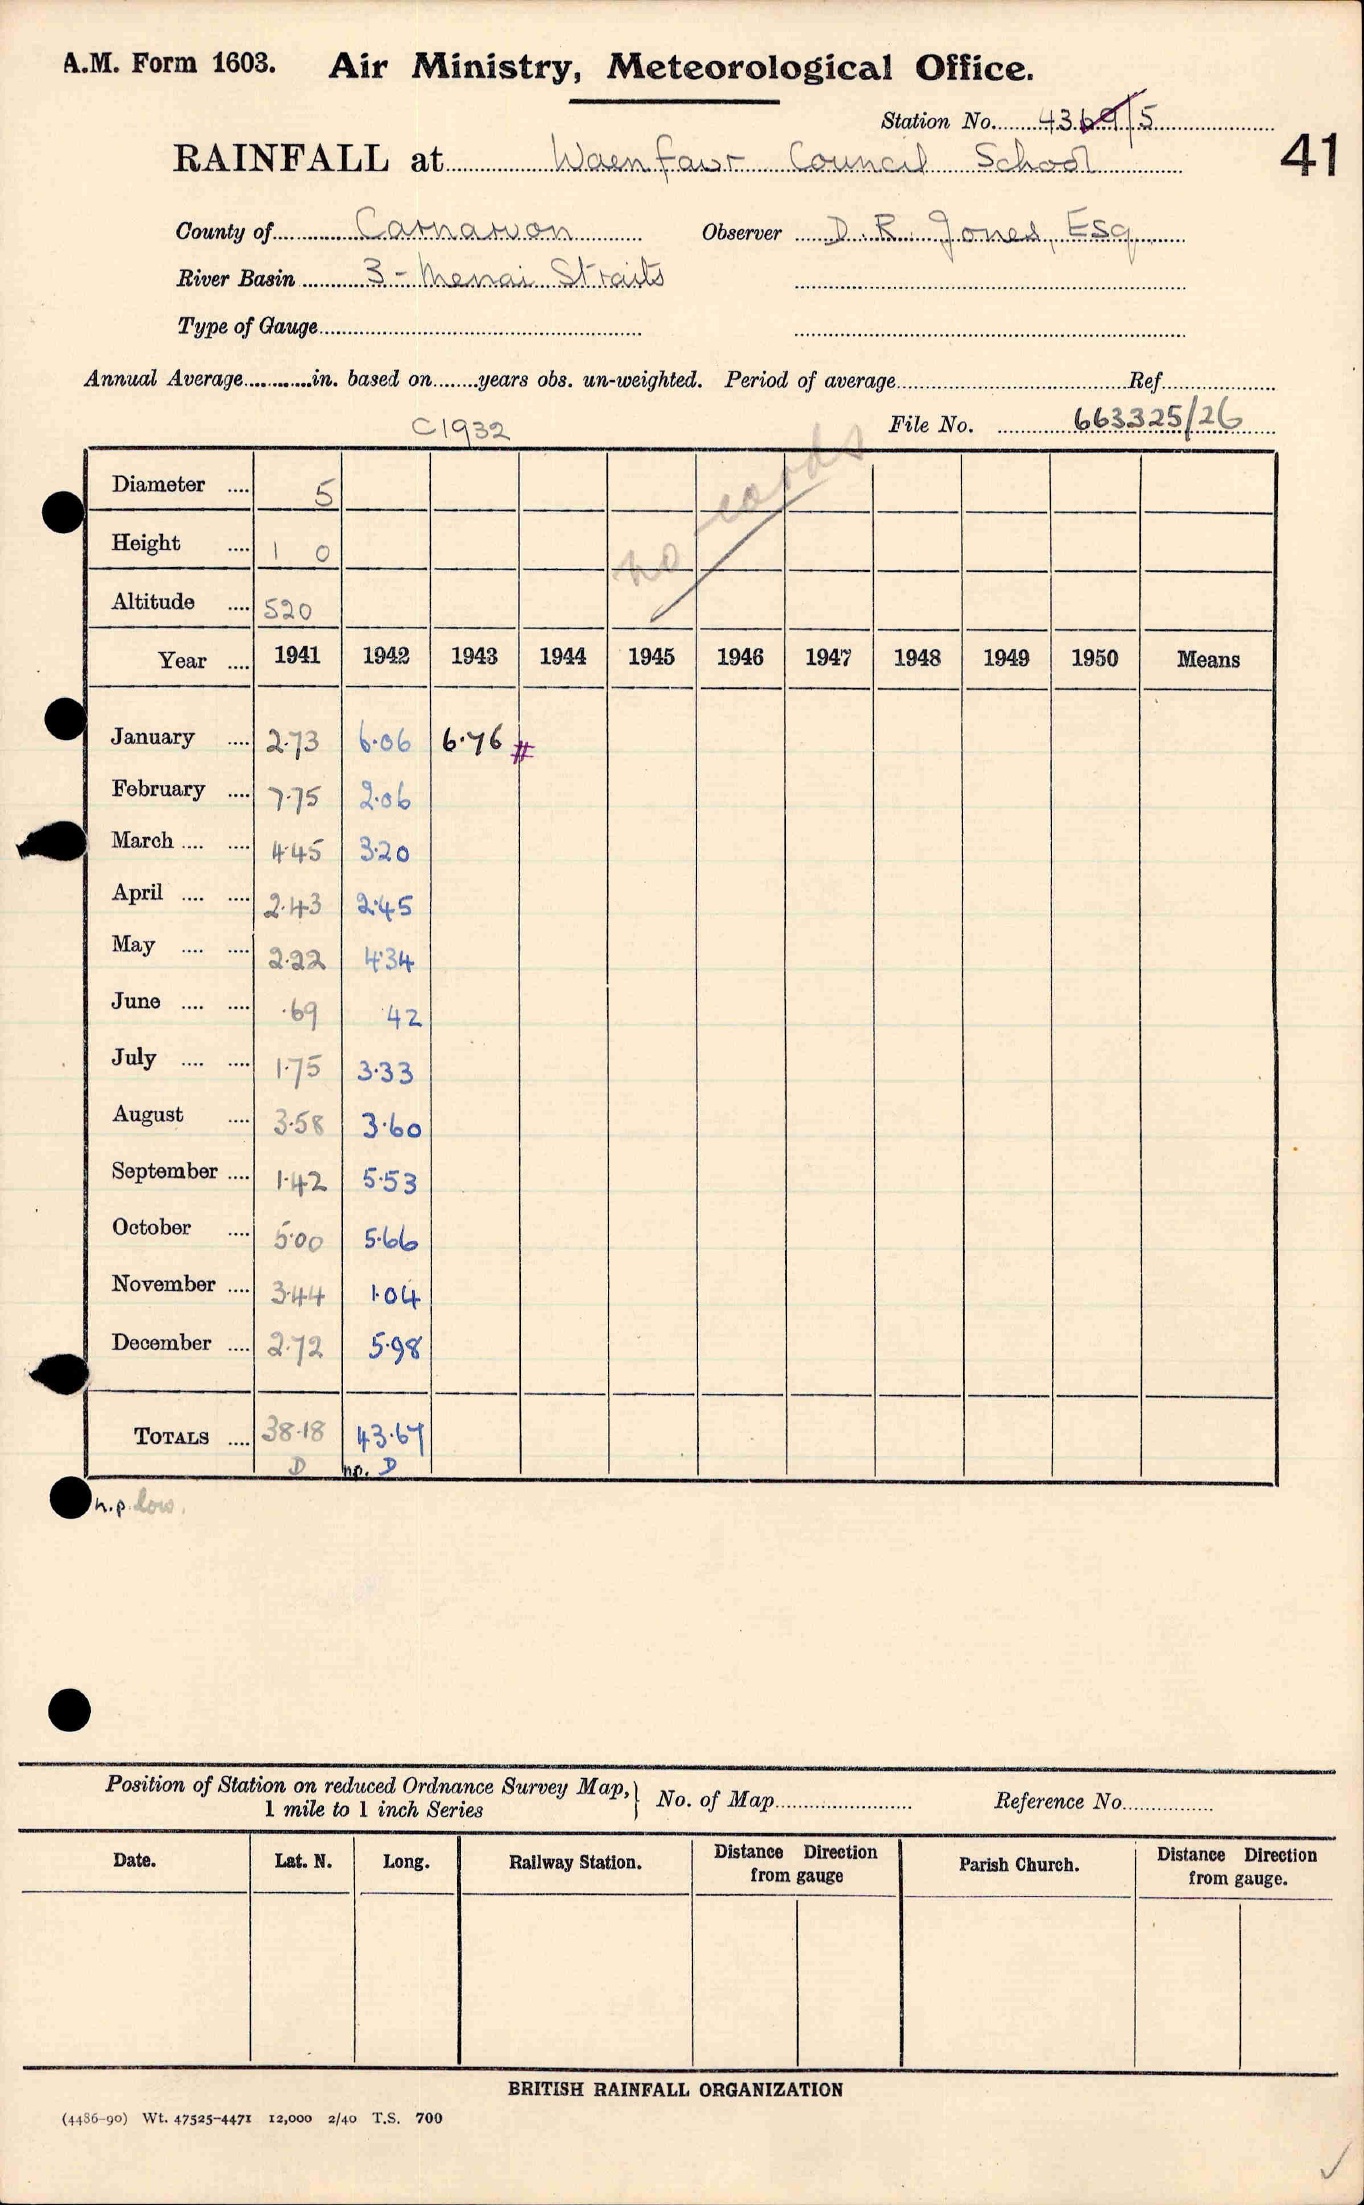 A.M. Form 1603. Air Ministry, Meteorological Office.
Station No. 4369/5
RAINFALL at Waenfawr Council School 41
County of Carnarvon Observer D. R. Jones, Esq.
River Basin 3 - Menai Straits
Type of Gauge
Annual Average............in. based on........years obs. un-weighted. Period of average Ref.
File No. 663325/26
C1932
no coords
Diameter .... 5
Height .... 1 0
Altitude .... 520
Year .... 1941 1942 1943 1944 1945 1946 1947 1948 1949 1950 Means
January .... 2.73 6.06 6.76 #
February .... 7.75 2.06
March .... .... 4.45 3.20
April .... .... 2.43 2.45
May .... .... 2.22 4.34
June .... .... .69 42
July .... .... 1.75 3.33
August .... 3.58 3.60
September .... 1.42 5.53
October .... 5.00 5.66
November .... 3.44 1.04
December .... 2.72 5.98
TOTALS .... 38.18 43.67
D np. D
n.p. low.
Position of Station on reduced Ordnance Survey Map, } No. of Map Reference No.
1 mile to 1 inch Series
Date. Lat. N. Long. Railway Station. Distance Direction from gauge Parish Church. Distance Direction from gauge.
BRITISH RAINFALL ORGANIZATION
(4486-90) Wt. 47525-4471 12,000 2/40 T.S. 700